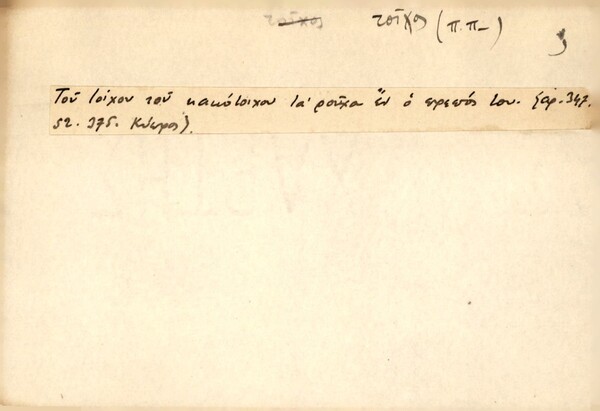 τοῖχος τοῖχος (π.π-) 3
Τοῦ τοίχου τοῦ κακότοιχου τὰ ροῦχα ἒν ὁ σιεπός του. (αρ. 347.
52. 375. Κύπρος).